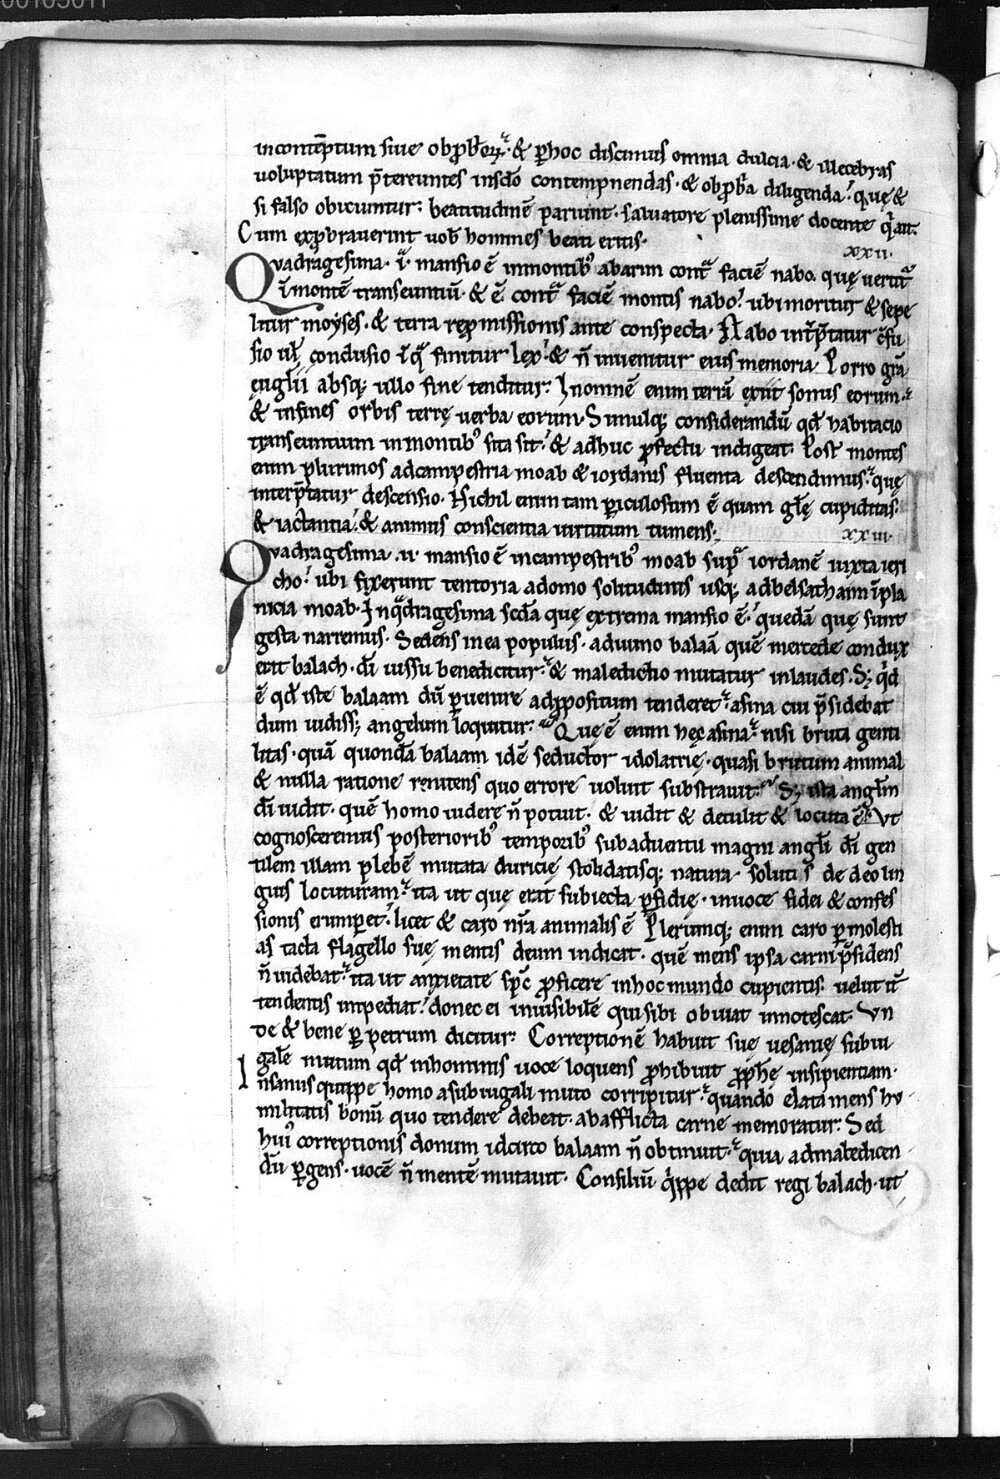 00103011
incontēptum siue obprobꝛiorꝝ· & ꝑhoc discimus omnia dulcia· & illecebras
uoluptatum p̄tereuntes insc̄do contempnendas· & obprobria diligenda· quę &
si falso obiciuntur· beatitudinē pariunt· saluatore plenissime docente q̇ ait·
Cum exprobrauerint uob̄ homines beati eritis·
xxii·
Quadragesima· i· mansio ē inmontib; abarim cont̄ faciē nabo· quę uertit̄
inmontē transeuntiū· & ē cont̄ faciē montis nabo· ubi moritur & sepe
litur moyses· & terra repromissionis ante conspecta· Nabo int̄p̄tatur
sio uł conclusio in q̇ finitur lex· & n̄ inuenitur eius memoria· Porro gr̄a
eugłii absq; ullo fine tenditur· Inomnē enim terrā exiit sonus eorum·
& infines orbis terrę uerba eorum· Simulq; considerandū qd̄ habitacio
transeuntium inmontib; sita sit· & adhuc ꝓfectu indigeat· Post montes
enim plurimos adcampestria moab & iordanis fluenta descendimus· quę
interp̄tatur descensio· Nichil enim tam ꝑiculosum ē quam głę cupiditas
& iactantia· & animus conscientia uirtutum tumens·
xxiii·
Quadragesima· ii· mansio ē incampestrib; moab sup̄ iordanē iuxta ieri
cho· ubi fixerunt tentoria adomo solitudinis usq; adbelsathaim inpla
nicia moab· In q̇dragesima sc̄da quę extrema mansio ē· quedā quę sunt
gesta narremus· Sedens inea populus· adiuino balaā quē mercede condux
erat balach· dī iussu benedicitur· & maledictio mutatur inlaudes· S; q̇d
ē qd̄ iste balaam dū ꝑuenire adꝓpositum tenderet· asina cui p̄sidebat
dum uidiss; angelum loquitur· Quę ē enim hęc asina· nisi bruta genti
litas· quā quondā balaam idē seductor idolatrię· quasi brutum animal
& nulla ratione renitens quo errore uoluit substrauit· S; ista angłm
dī uidit· quē homo uidere n̄ potuit· & uidit & detulit & locuta ē· Vt
cognosceremus posteriorib; temporib; subaduentu magni angłi dī gen
tilem illam plebē mutata duricię stolidatisq; natura· solutis de deo lin
guis locuturam· ita ut quę erat subiecta ꝑfidię· inuoce fidei & confes
sionis erumperet· licet & caro nr̄a animalis ē Plerumq; enim caro ꝑmolesti
as tacta flagello suę mentis deum indicat· quē mens ipsa carni p̄sidens
n̄ uidebat· ita ut anxietate sp̄c ꝓficere inhoc mundo cupientis· uelut it̄
tendentis impediat· donec ei inuisibilē qui sibi obuiat innotescat· Vn
de & bene ꝑ petrum dicitur· Correptionē habuit suę uesanię subiu
galē mutum qd̄ inhominis uoce loquens ꝓhibuit ꝓph̄ę insipientiam·
Insanus quippe homo asubiugali muto corripitur· quando elata mens hu
militatis bonū quo tendere debeat· abafflicta carne memoratur· Sed
hui; correptionis donum idcirco balaam n̄ obtinuit· quia admaledicen
dū ꝑgens· uocē n̄ mentē mutauit· Consiliū q̇ppe dedit regi balach· ut